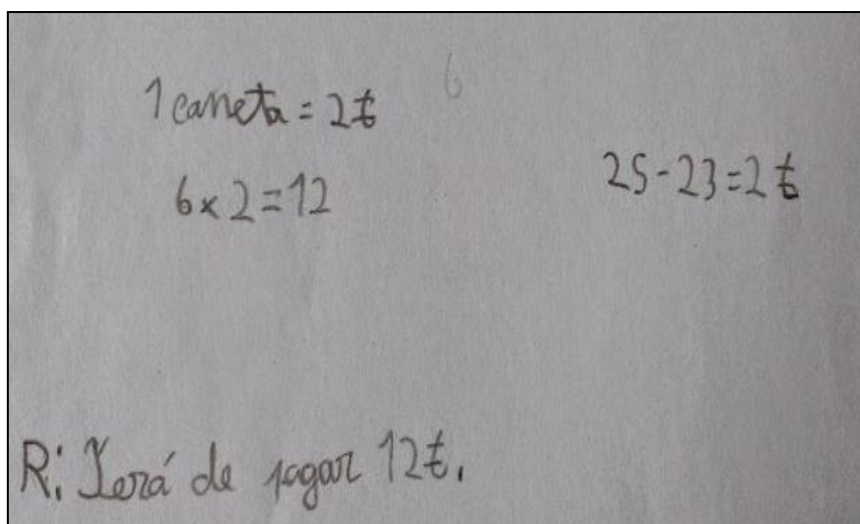 6
1 caneta = 2 ŧ
6 × 2 = 12
25 - 23 = 2 ŧ
R: Terá de pagar 12 ŧ.